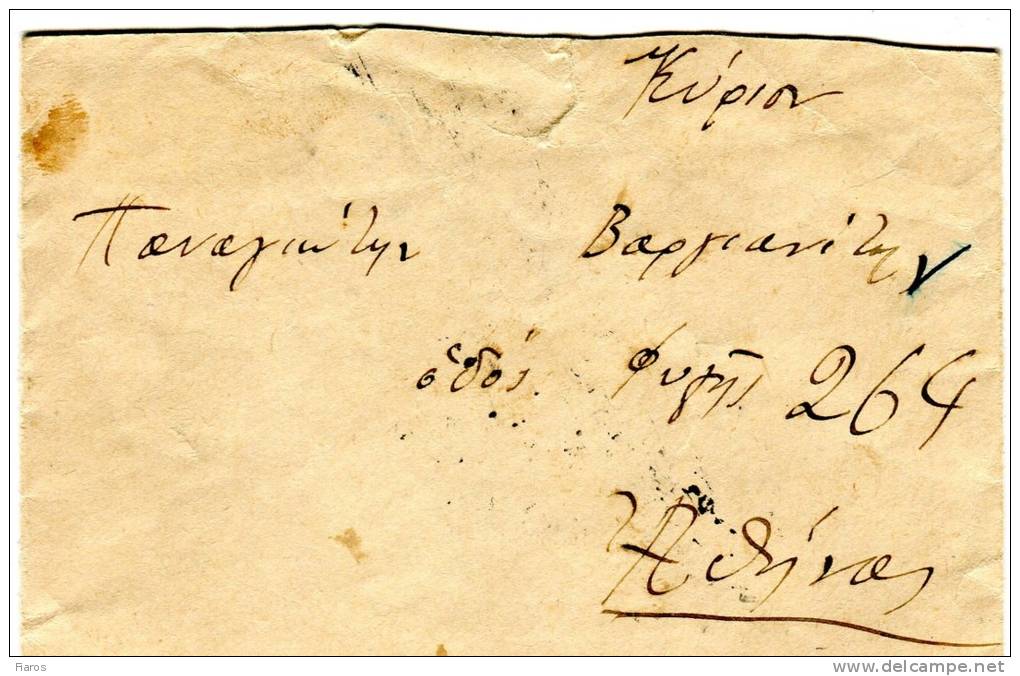 Κύριον
Παναγιώτην Βαργιανίτην
ὁδός Φυγῆς 264
Ἀθήνας
fiaros
www.delcampe.net